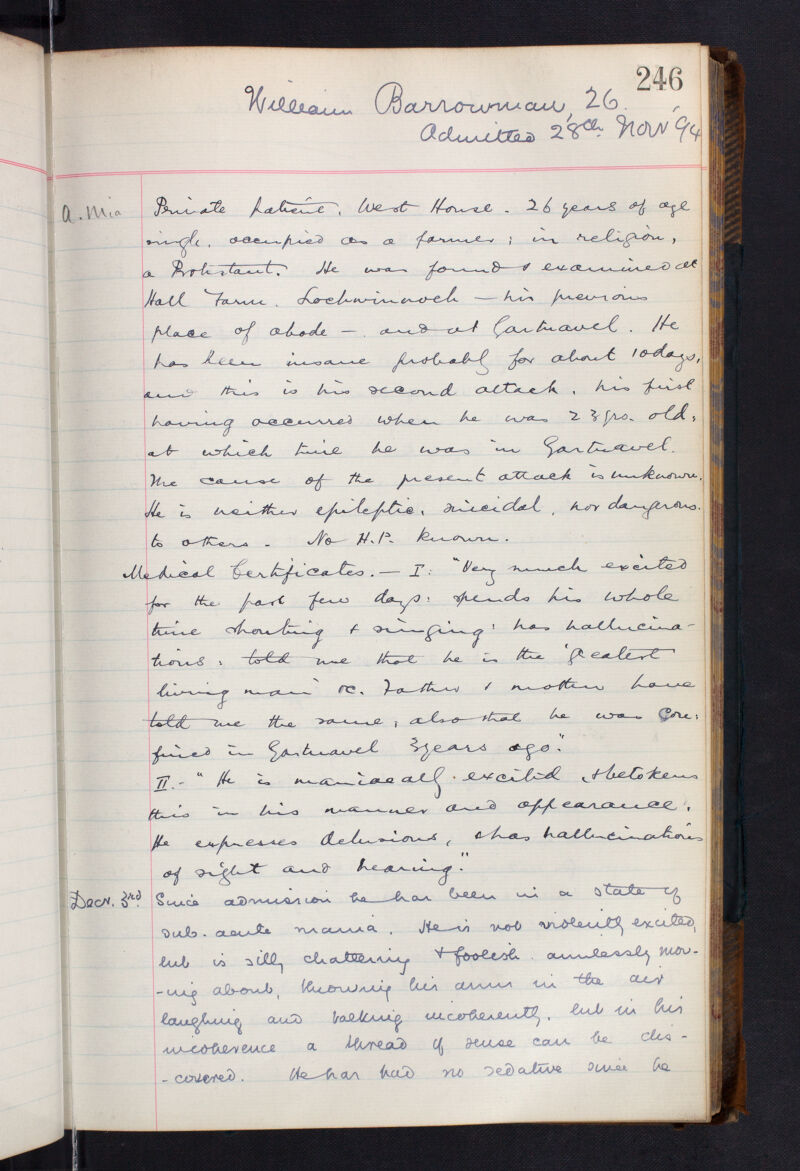 246
William Barrowman, 26.
Admitted 28th Novr '94
A. Mia
Private patient. West House. 26 years of age
single, occupied as a farmer; in religion,
a Protestant. He was found & examined at
Hall Farm, Lochwinnoch — his previous
place of abode — and at Gartnavel. He
has been insane probably for about 10 days,
and this is his second attack, his first
having occurred when he was 23 yrs. old,
at which time he was in Gartnavel.
The cause of the present attack is unknown.
He is neither epileptic, suicidal, nor dangerous
to others. No H.P. known.
Medical Certificates. — I: "Very much excited
for the past few days: spends his whole
time shouting & singing: has hallucina-
tions: told me that he is the 'greatest
living man' &c. Father & mother have
told me the same, also that he was con:
fined in Gartnavel 3 years ago".
II. - "He is maniacally excited, & betokens
this in his manner and appearance.
He expresses delusions, & has hallucinations
of sight and hearing."
Decr. 3rd. Since admission he has been in a state of
sub-acute mania. He is not violently excited,
but is silly chattering & foolish aimlessly mov-
-ing about, throwing his arms in the air
laughing and talking incoherently, but in his
incoherence a thread of sense can be dis-
-covered. He has had no sedative since he